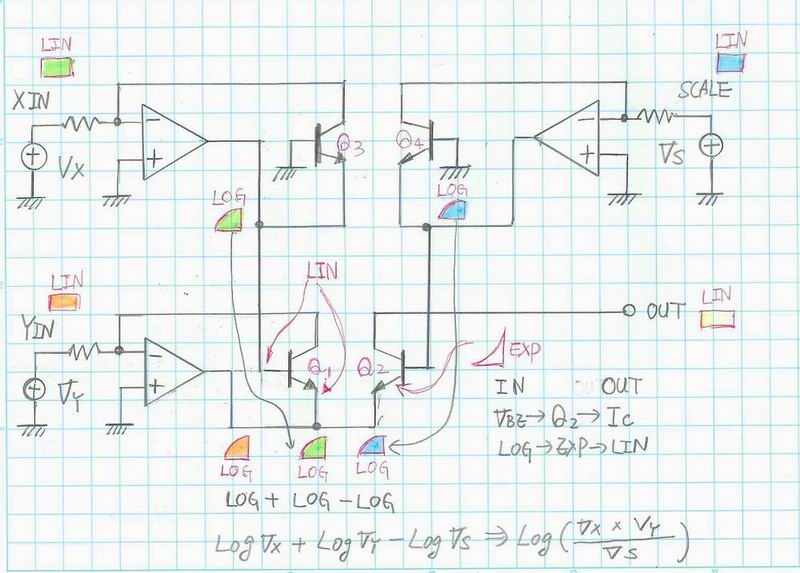 LIN
LIN
XIN
SCALE
VX
Q3
Q4
VS
LOG
LOG
LIN
LIN
LIN
YIN
OUT
VY
Q1
Q2
EXP
IN OUT
VBE→Q2→Ic
LOG→EXP→LIN
LOG
LOG
LOG
LOG + LOG - LOG
Log Vx + Log VY - Log VS ⇒ Log (Vx × VY / VS)